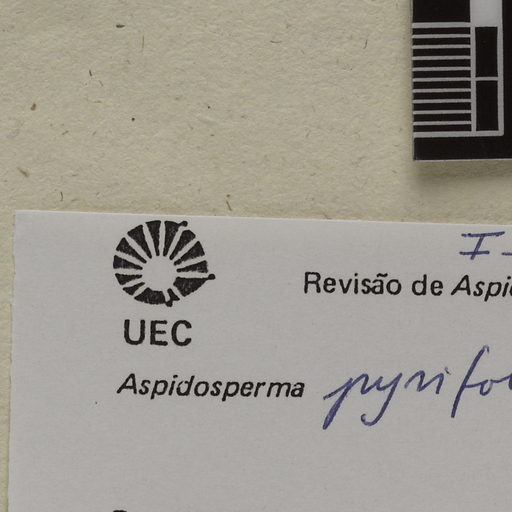 I-
Revisão de Aspi
UEC
Aspidosperma pyrifo